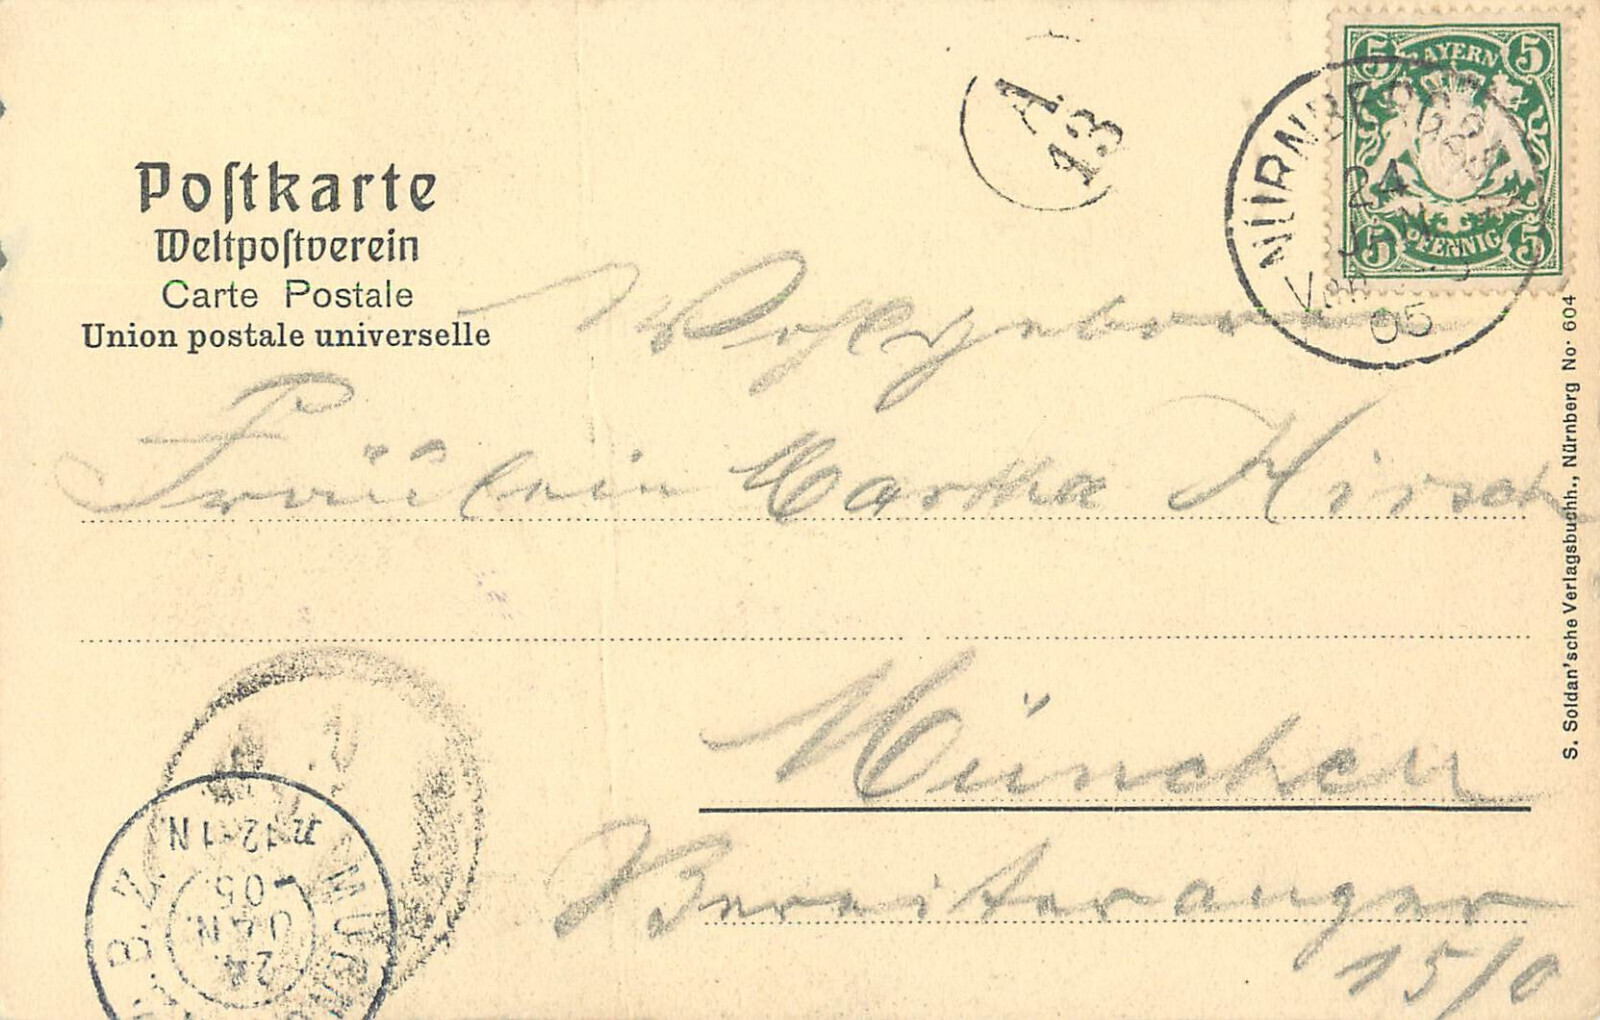 Postkarte
Weltpostverein
Carte Postale
Union postale universelle
A
13
5 BAYERN 5
5 PFENNIG 5
NÜRNBERG
24
JAN
Vor
05
Wohlgeboren
Fräulein Martha Hirsch
München
Bereiteranger
15/0
S. Soldan'sche Verlagsbuchh., Nürnberg No. 604
MUENCH
B.Z.
24.
JAN.
05.
12-1 N.